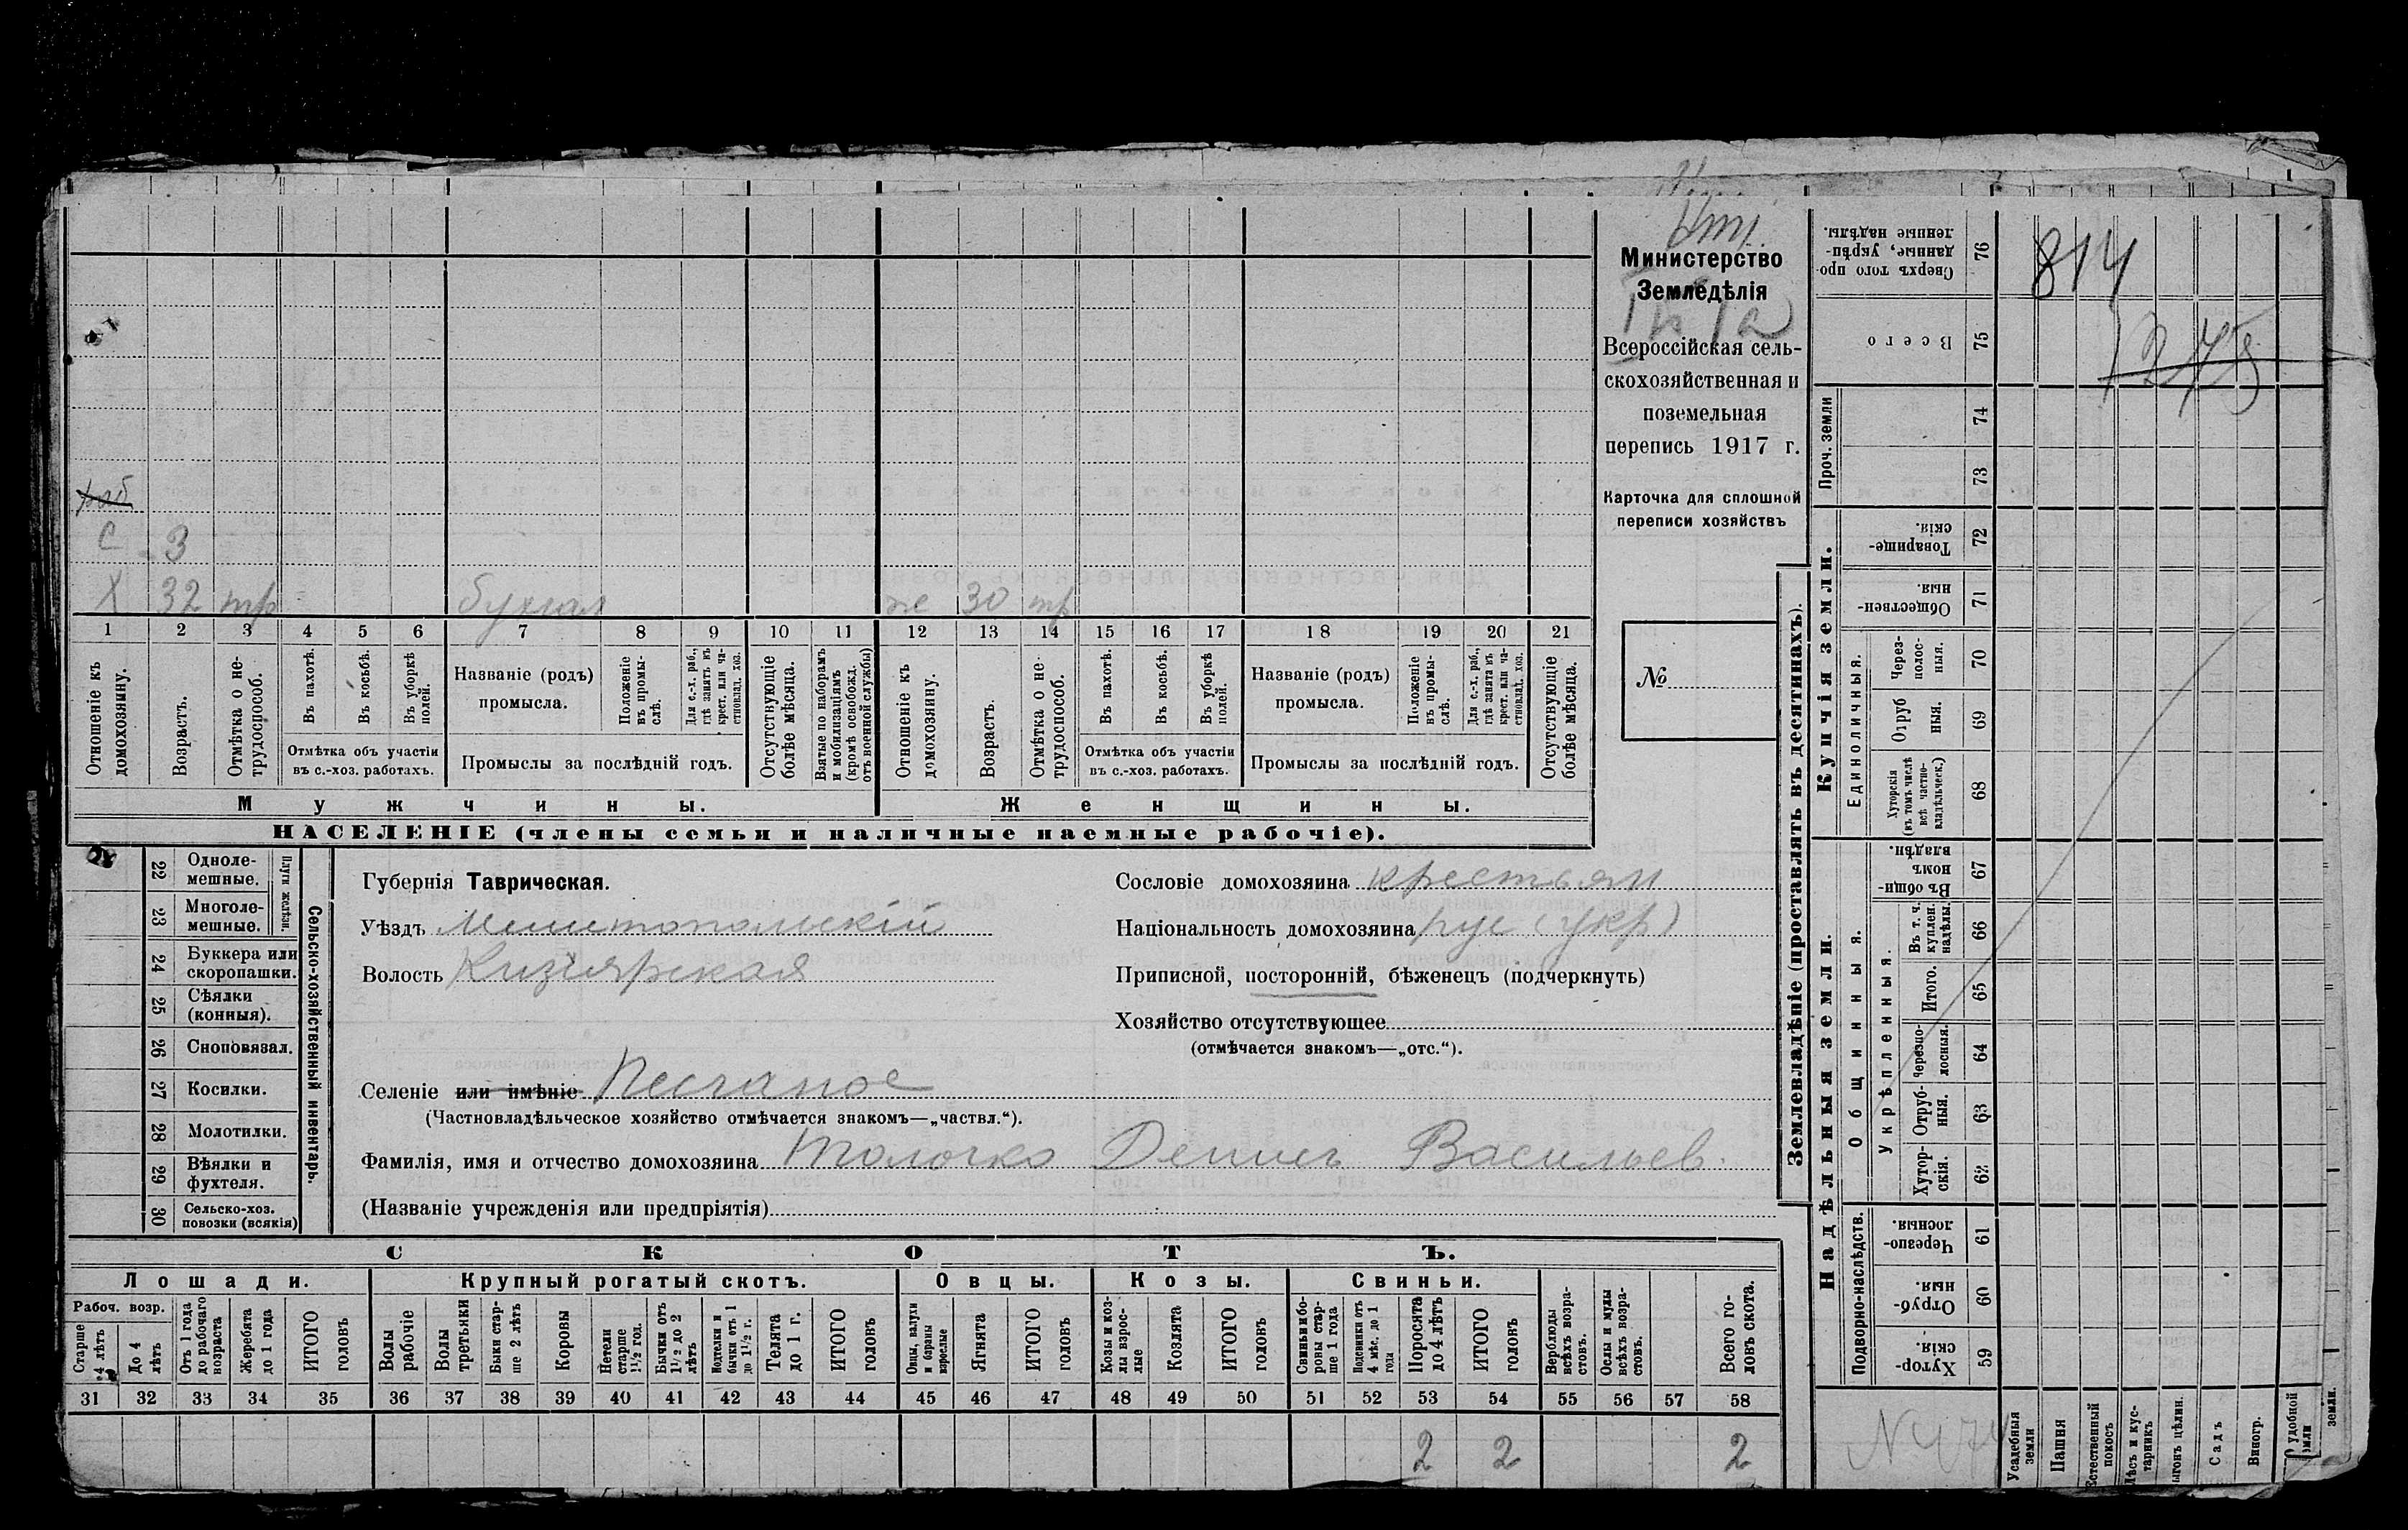 Министерство
Земледѣлія
Всероссійская сель-
скохозяйственная и
поземельная
перепись 1917 г.
Карточка для сплошной
переписи хозяйствъ
№
раб
С 3
Х 32 тр бухгал же 30 тр
1 2 3 4 5 6 7 8 9 10 11 12 13 14 15 16 17 18 19 20 21
Отношеніе къ домохозяину.
Возрастъ.
Отмѣтка о не-трудоспособ.
Въ пахотѣ.
Въ косьбѣ.
Въ уборкѣ полей.
Отмѣтка объ участіи въ с.-хоз. работахъ.
Названіе (родъ) промысла.
Положеніе въ промы-слѣ.
Для с.-х. раб., гдѣ занятъ въ крест. или ча-стновлад. хоз.
Промыслы за послѣдній годъ.
Отсутствующіе болѣе мѣсяца.
Взятые по наборамъ и мобилизаціямъ (кромѣ освобожд. отъ военной службы)
Отношеніе къ домохозяину.
Возрастъ.
Отмѣтка о не-трудоспособ.
Въ пахотѣ.
Въ косьбѣ.
Въ уборкѣ полей.
Отмѣтка объ участіи въ с.-хоз. работахъ.
Названіе (родъ) промысла.
Положеніе въ промы-слѣ.
Для с.-х. раб., гдѣ занята въ крест. или ча-стновлад. хоз.
Промыслы за послѣдній годъ.
Отсутствующіе болѣе мѣсяца.
Мужчины. Женщины.
НАСЕЛЕНІЕ (члены семьи и наличные наемные рабочіе).
22 Одноле-мешные.
23 Многоле-мешные.
Плуги желѣзн.
24 Буккера или скоропашки.
25 Сѣялки (конныя).
26 Сноповязал.
27 Косилки.
28 Молотилки.
29 Вѣялки и фухтеля.
30 Сельско-хоз. повозки (всякія)
Сельско-хозяйственный инвентарь.
Губернія Таврическая.
Уѣздъ Мелитопольскій
Волость Кизіярская
Сословіе домохозяина крестьян
Національность домохозяина рус (укр)
Приписной, посторонній, бѣженецъ (подчеркнуть)
Хозяйство отсутствующее
(отмѣчается знакомъ—„отс.“).
Селеніе или имѣніе Песчаное
(Частновладѣльческое хозяйство отмѣчается знакомъ—„частвл.“).
Фамилія, имя и отчество домохозяина Толочко Денисъ Васильев.
(Названіе учрежденія или предпріятія)
СКОТЪ.
Лошади. Крупный рогатый скотъ. Овцы. Козы. Свиньи.
Рабоч. возр.
Старше 4 лѣтъ
До 4 лѣтъ
Отъ 1 года до рабочаго возраста
Жеребята до 1 года
ИТОГО головъ
Волы рабочіе
Волы третьяки
Быки стар-ше 2 лѣтъ
Коровы
Нетели старше 1½ год.
Бычки отъ 1½ до 2 лѣтъ
Подтелки и бычки отъ 1 до 1½ г.
Телята до 1 г.
ИТОГО головъ
Овцы, валухи и бараны взрослые
Ягнята
ИТОГО головъ
Козы и коз-лы взрос-лые
Козлята
ИТОГО головъ
Свиньи и бо-ровы стар-ше 1 года
Подсвинки отъ 4 мѣс. до 1 года
Поросята до 4 лѣтъ
ИТОГО головъ
Верблюды всѣхъ возра-стовъ.
Ослы и мулы всѣхъ возра-стовъ.
Всего го-ловъ скота.
31 32 33 34 35 36 37 38 39 40 41 42 43 44 45 46 47 48 49 50 51 52 53 54 55 56 57 58
2 2 2
Землевладѣніе (проставлять въ десятинахъ).
Купчія земли.
Надѣльныя земли.
76 Сверхъ того про-данные, укрѣп-ленные надѣлы.
814
75 Всего
Проч. земли
74
73
72 Товарище-скія.
71 Обществен-ныя.
Единоличныя.
70 Через-полос-ныя.
69 Отруб-ныя.
68 Хуторскія (въ томъ числѣ всѣ частно-владѣльческ.)
Общинныя.
67 Въ общин-номъ владѣн.
Укрѣпленныя.
66 Въ т. ч. куплен. надѣлы.
65 Итого.
64 Черезпо-лосныя.
63 Отруб-ныя.
62 Хутор-скія.
Подворно-наслѣдств.
61 Черезпо-лосныя.
60 Отруб-ныя.
59 Хутор-скія.
Усадебныя земли
Пашня
Естественный покосъ
Лѣсъ и кус-тарникъ
Выгонъ цѣлин.
Садъ
Виногр.
удобной земли
земли.